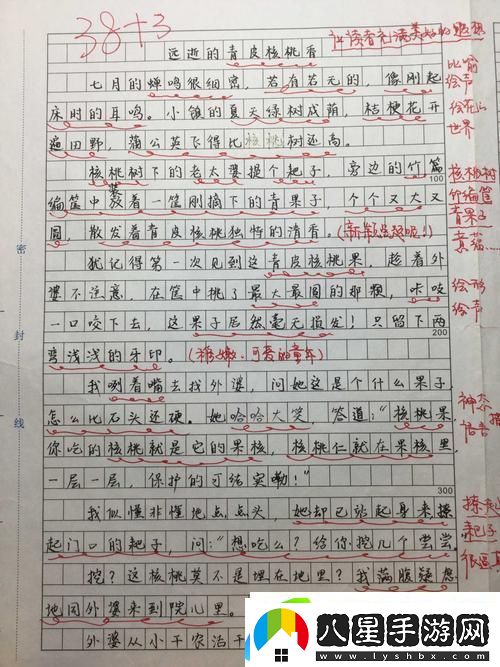 38+3
远逝的青皮核桃香
让读者充满美好的遐想
七月的蝉鸣很细密，若有若无的，像刚起
床时的耳鸣。小镇的夏天绿树成荫，桔梗花开
遍田野，蒲公英飞得比核桃树还高。
比喻
绘声
世界
核桃树下的老太婆提个耙子，旁边的竹篇
编筐中装着一筐刚摘下的青果子，个个又大又
圆，散发着青皮核桃独特的清香。
核桃树
竹编筐
青果子
100
犹记得第一次见到这青皮核桃果，趁着外
婆不注意，在筐中挑了最大最圆的那颗，咔吱
一口咬下去，这果子居然毫无损发！只留下两
弯浅浅的牙印。
绘形
绘声
200
我咧着嘴去找外婆，问她这是个什么果子，
怎么比石头还硬。她哈哈大笑 答道：“核桃果，
你吃的核桃就是它的果核，核桃仁就在果核里，
一层一层，保护的可结实嘞！”
神态
300
我似懂非懂地点点头，她却已站起身来操
起门口的耙子，问：“想吃么？给你挖几个尝尝。
挖？这核桃莫不是埋在地里？我满腹疑惑
地同外婆来到院儿里。
外婆从小干农活干
耙子
密
封
线
八星手游网
www.lyshbx.com